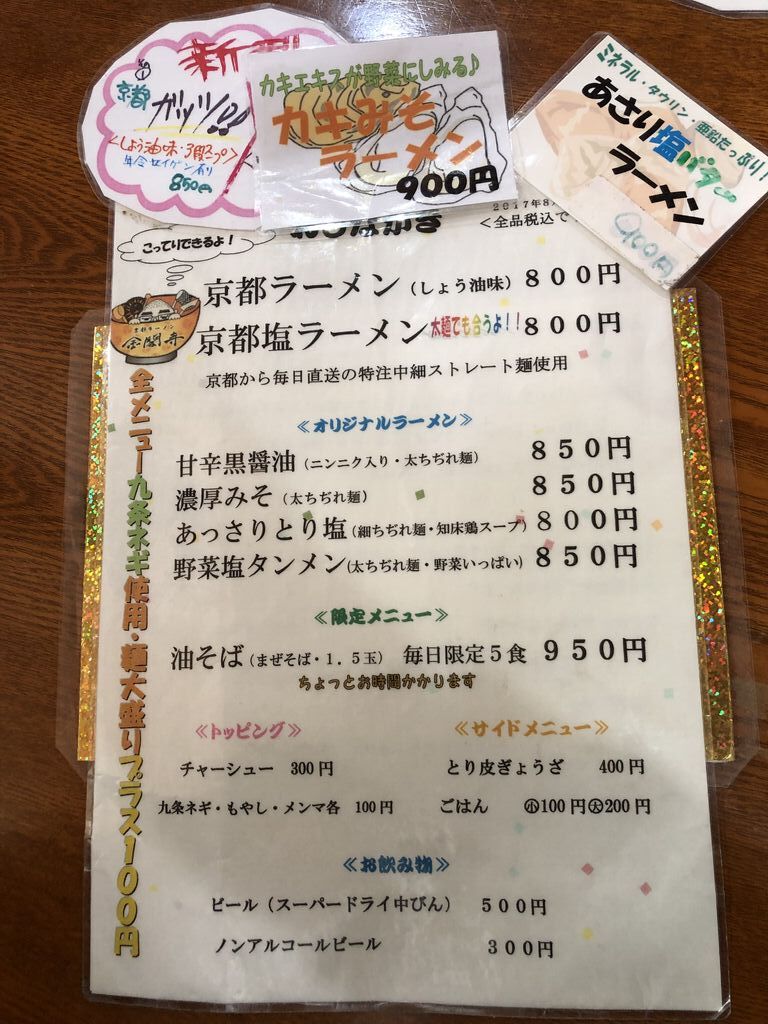 新
京都
ガッツ!!
<しょう油味・
850円
カキエキスが野菜にしみる♪
カキみそ
ラーメン
900円
ミネラル・タウリン・亜鉛たっぷり!
あさり塩バター
ラーメン
900円
2017年8
おしながき
<全品税込で
こってりできるよ!
京都ラーメン(しょう油味)800円
京都塩ラーメン太麺でも合うよ!!800円
京都から毎日直送の特注中細ストレート麺使用
≪オリジナルラーメン≫
甘辛黒醤油(ニンニク入り・太ちぢれ麺) 850円
濃厚みそ(太ちぢれ麺) 850円
あっさりとり塩(細ちぢれ麺・知床鶏スープ)800円
野菜塩タンメン(太ちぢれ麺・野菜いっぱい)850円
≪限定メニュー≫
油そば(まぜそば・1.5玉) 毎日限定5食 950円
ちょっとお時間かかります
≪トッピング≫
チャーシュー 300円
九条ネギ・もやし・メンマ各 100円
≪サイドメニュー≫
とり皮ぎょうざ 400円
ごはん ㊙小100円㊙大200円
≪お飲み物≫
ビール(スーパードライ中びん) 500円
ノンアルコールビール 300円
全メニュー九条ネギ使用・麺大盛りプラス100円